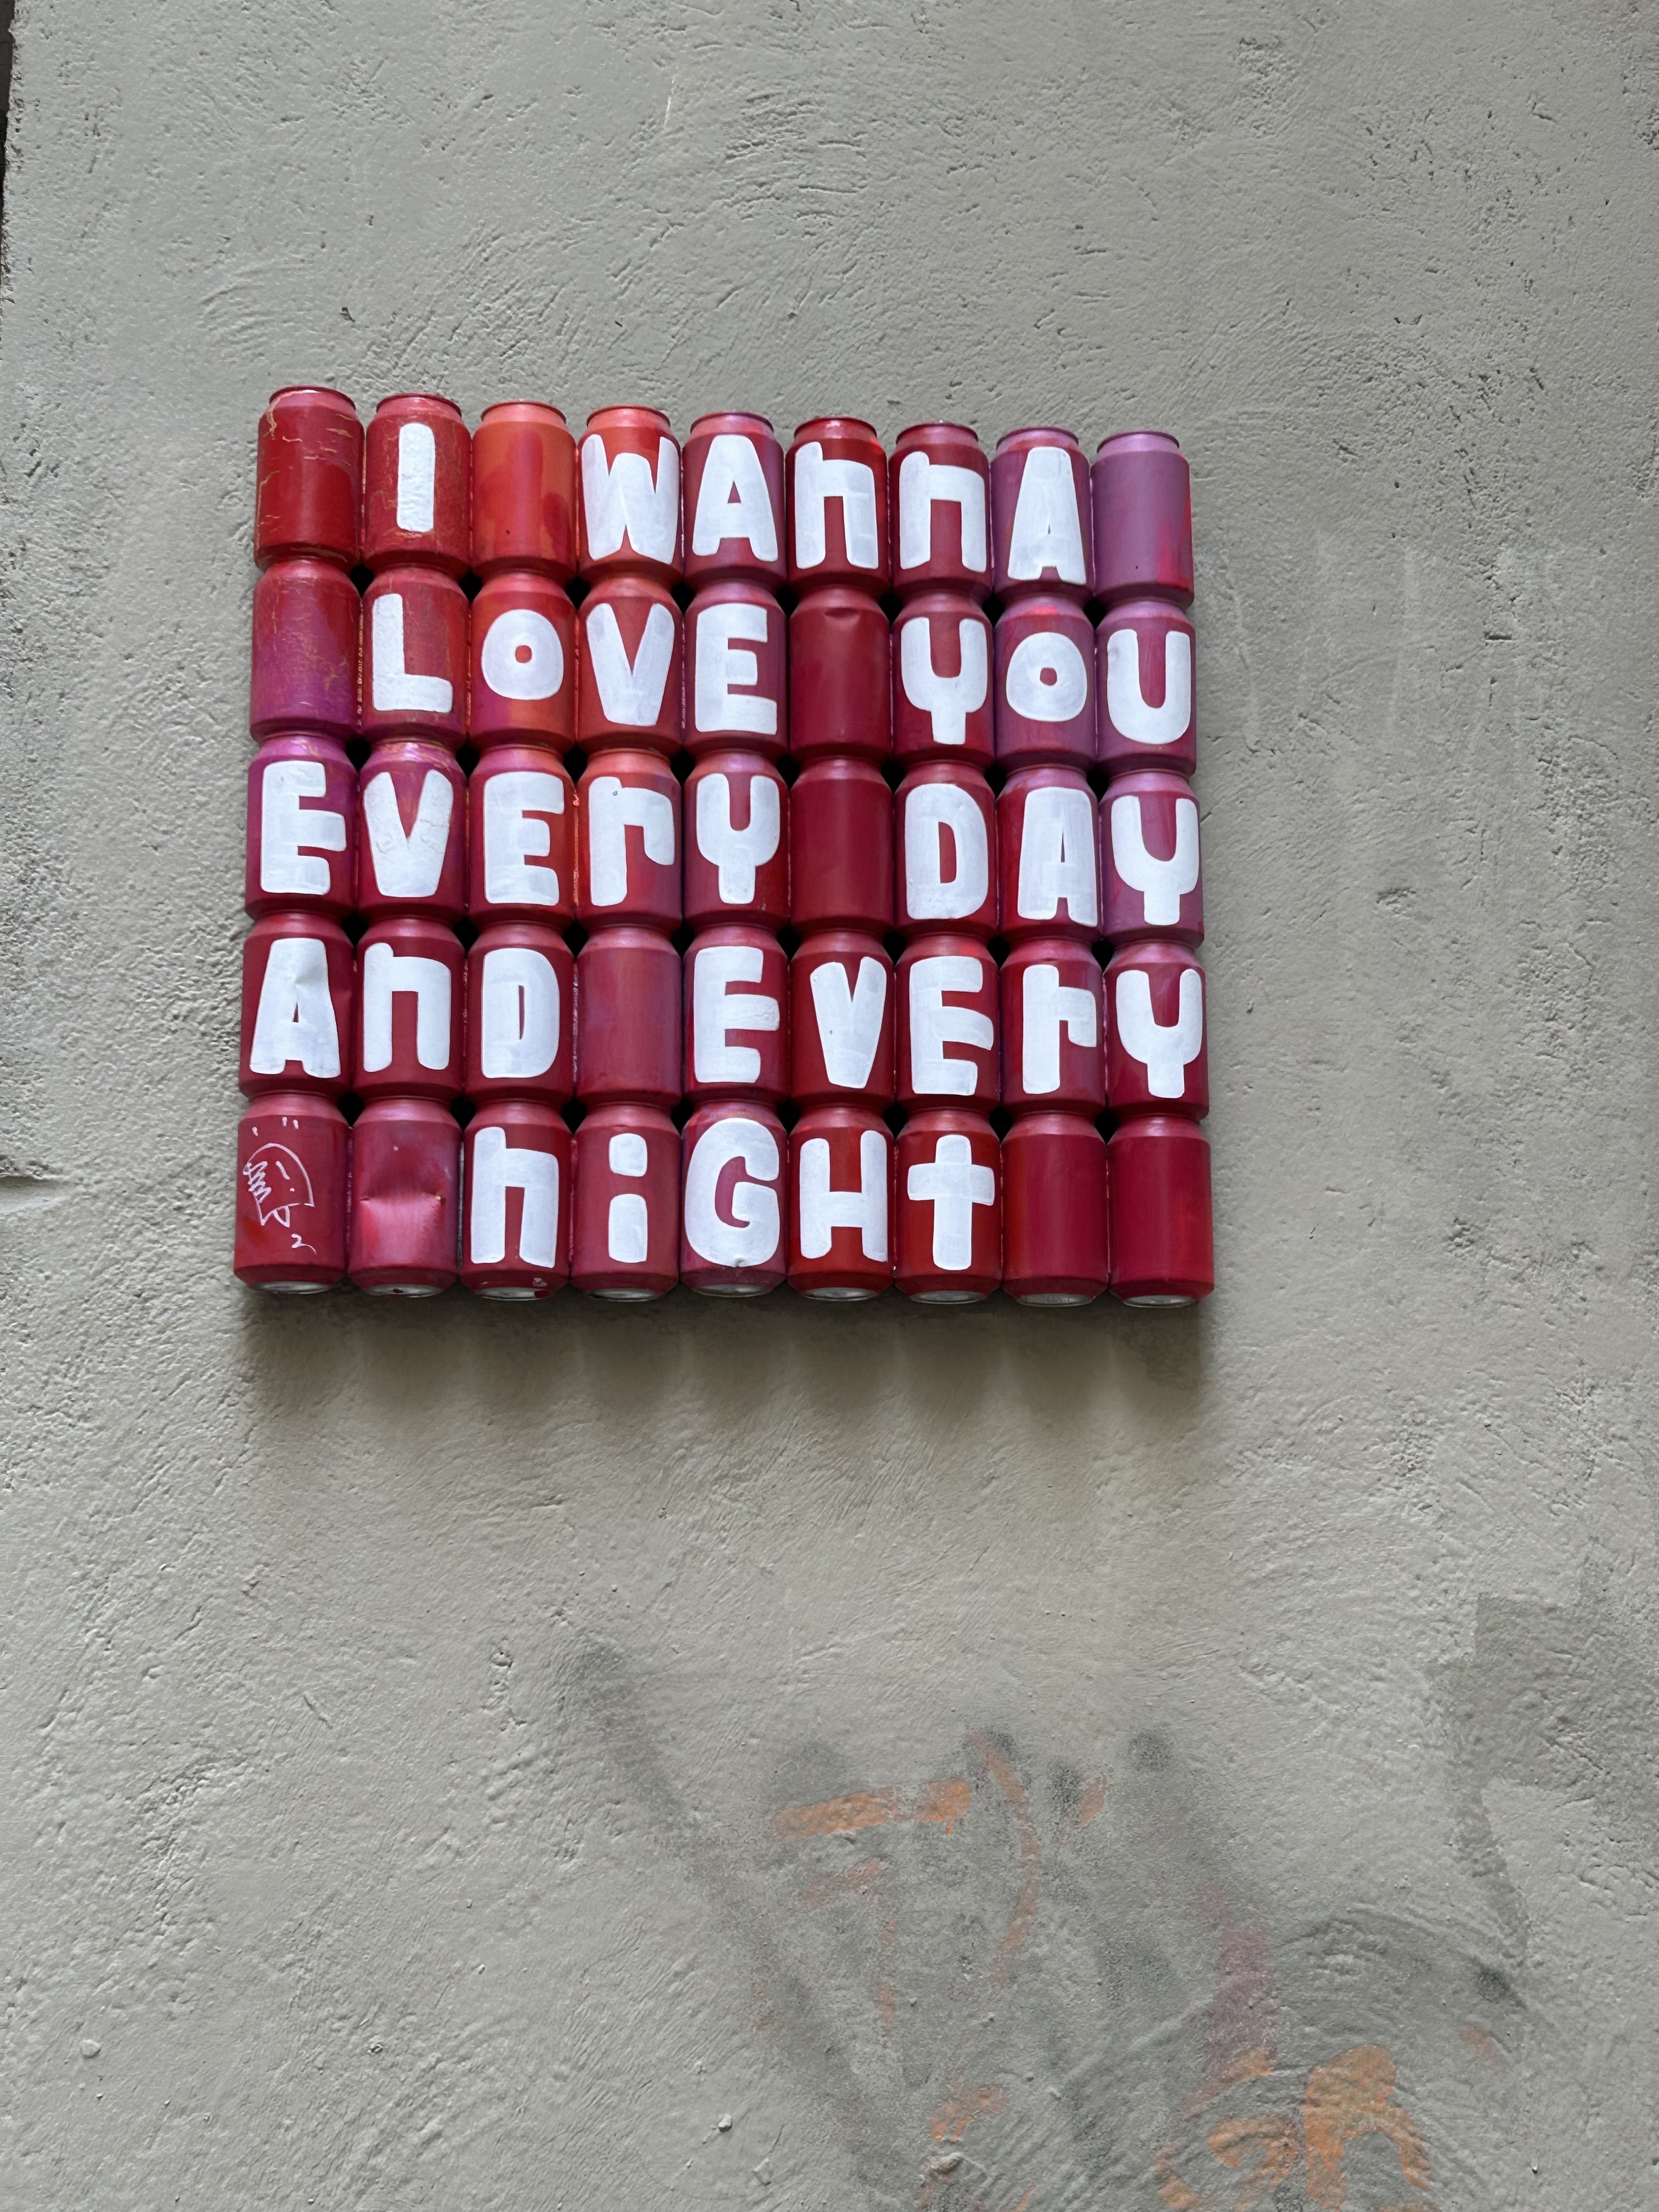 I WAnnA
LOVE YOU
EVErY DAY
AnD EVErY
niGHt